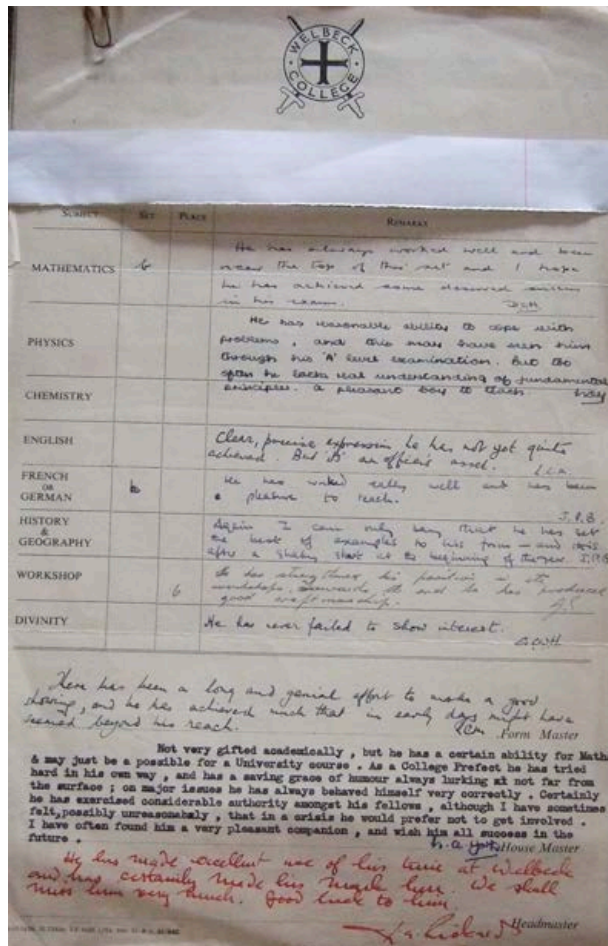 WELBECK
COLLEGE
SUBJECT SET PLACE REMARKS
MATHEMATICS 6 He has always worked well and been
near the top of this set and I hope
he has achieved some deserved success
in his exam.
PHYSICS He has reasonable ability to cope with
problems, and this may have seen him
through his 'A' level examination. But too
often he lacks real understanding of fundamental
CHEMISTRY principles. A pleasant boy to teach.
ENGLISH Clear, precise expression he has not yet quite
achieved. But is an officer's asset.
FRENCH
OR
GERMAN
He has worked really well and has been
a pleasure to teach. J.P.B.
HISTORY
&
GEOGRAPHY
Again I can only say that he has set
the best of examples to his form - and this
after a shaky start at the beginning of the year. J.P.B.
WORKSHOP 6 He has strengthened his position in the
workshop and he has produced
good craftmanship.
DIVINITY He has never failed to show interest.
There has been a long and genial effort to make a good
showing, and he has achieved much that in early days might have
seemed beyond his reach.
Form Master
Not very gifted academically , but he has a certain ability for Math
& may just be a possible for a University course . As a College Prefect he has tried
hard in his own way , and has a saving grace of humour always lurking at not far from
the surface ; on major issues he has always behaved himself very correctly . Certainly
he has exercised considerable authority amongst his fellows , although I have sometimes
felt,possibly unreasonably , that in a crisis he would prefer not to get involved .
I have often found him a very pleasant companion , and wish him all success in the
future .
House Master
He has made excellent use of his time at Welbeck
and has certainly made his mark here. We shall
miss him very much. Good luck to him.
Headmaster